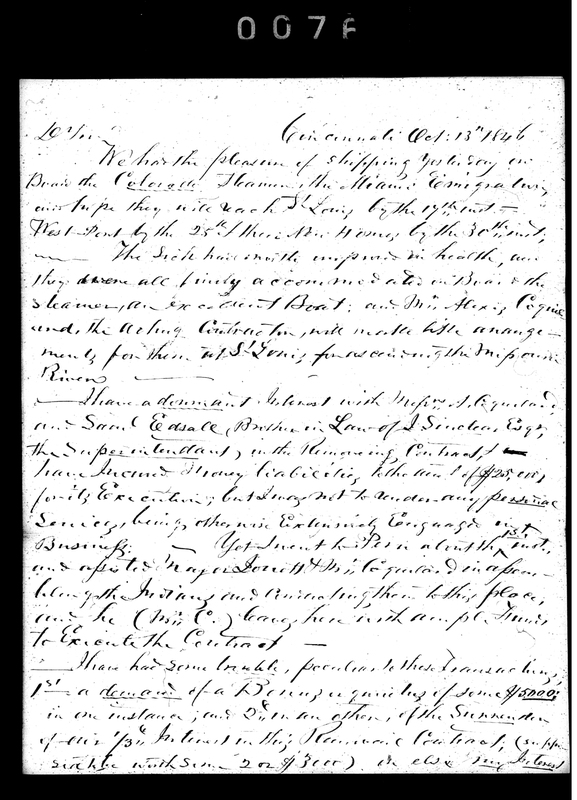 0076
Dr Sir Cincinnati Oct: 13th 1846
We had the pleasure of shipping yesterday on
Board the Colorado Steamer, the Miami Emigrating
and hope they will reach St Louis by the 17th inst -
West Port by the 25th & their New Homes by the 30th inst,
The Sick had improved in health, and
they were all finely accommodated on Board the
steamer, an excellent Boat; and Mr Alexis Coquil
the Acting Contractor, will make able arrange-
ments for them at St Louis for ascending the Missouri
River
I have a dormant Interest with Messrs A. Coquillard
and Saml Edsall, Brother in Law of J Sinclear Esqr,
the Superintendant, in the Removing Contract, &
have Incurred money liabilities to the amt of $25,000,
for its Execution; but I was not to render any personal
Services, being otherwise Extensively Engaged in
Business. Yet I went to Peru about the 1st inst,
and assisted Major &
the Indians and conducting them to this place,
and he (Mr C.) leaves here with ample Funds
to Execute the Contract
I have had some trouble, peculiar to these Transactions,
1st a demand of a Bonus equivalent of some $5000;
in one instance; and 2d in an other, of the Surrender
of our 1/3d Interest in this Removal Contract,
worth some 2 or $3000) or else my Interest